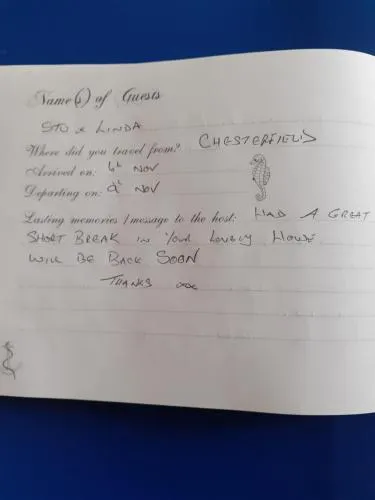 Name(s) of Guests
STU & LINDA
Where did you travel from? CHESTERFIELD
Arrived on: 6th NOV
Departing on: 9th NOV
Lasting memories / message to the host: HAD A GREAT
SHORT BREAK IN YOUR LOVELY HOME
WILL BE BACK SOON
THANKS